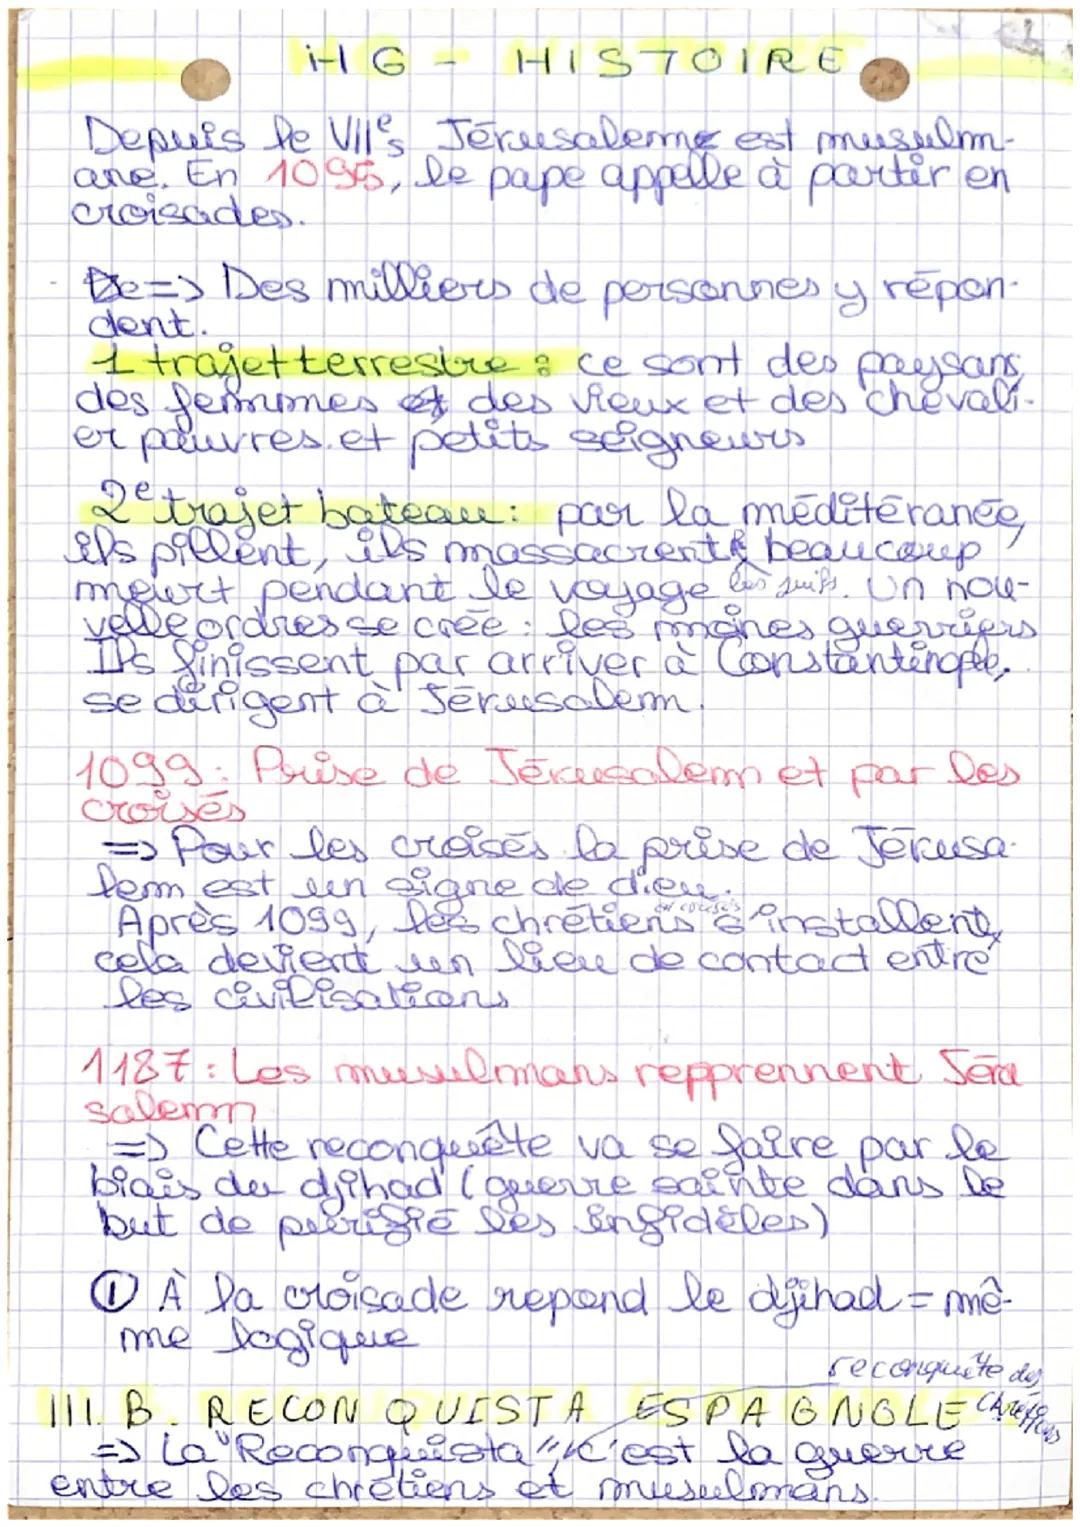 HG - HISTOIRE
Depuis le VIIe s Jérusaleme est musulm-
ane. En 1095, le pape appelle à partir en
croisades.
De => Des milliers de personnes y répon-
dent.
1 trajet terrestre : ce sont des paysans,
des femmes et des vieux et des chevali-
er pauvres et petits seigneurs
2e trajet bateau : par la méditéranée,
ils pillent, ils massacrent & beaucoup
meurt pendant le voyage les juifs. Un nou-
velle ordres se crée : les moines guerriers
Ils finissent par arriver à Constantinople,
se dirigent à Jérusalem.
1099 : Prise de Jérusalem et par les
croisés
=> Pour les croisés la prise de Jérusa-
lem est un signe de dieu.
Après 1099, les chrétiens ou croisés s'installent,
cela devient un lieu de contact entre
les civilisations
1187 : Les musulmans repprennent Jéru
salemn
=> Cette reconquête va se faire par le
biais du djihad (guerre sainte dans le
but de purifié les infidèles)
① À la croisade repond le djihad = mê-
me logique
reconquête des
chrétiens
III. B. RECONQUISTA ESPAGNOLE
=> La "Reconquista", c'est la guerre
entre les chrétiens et musulmans.